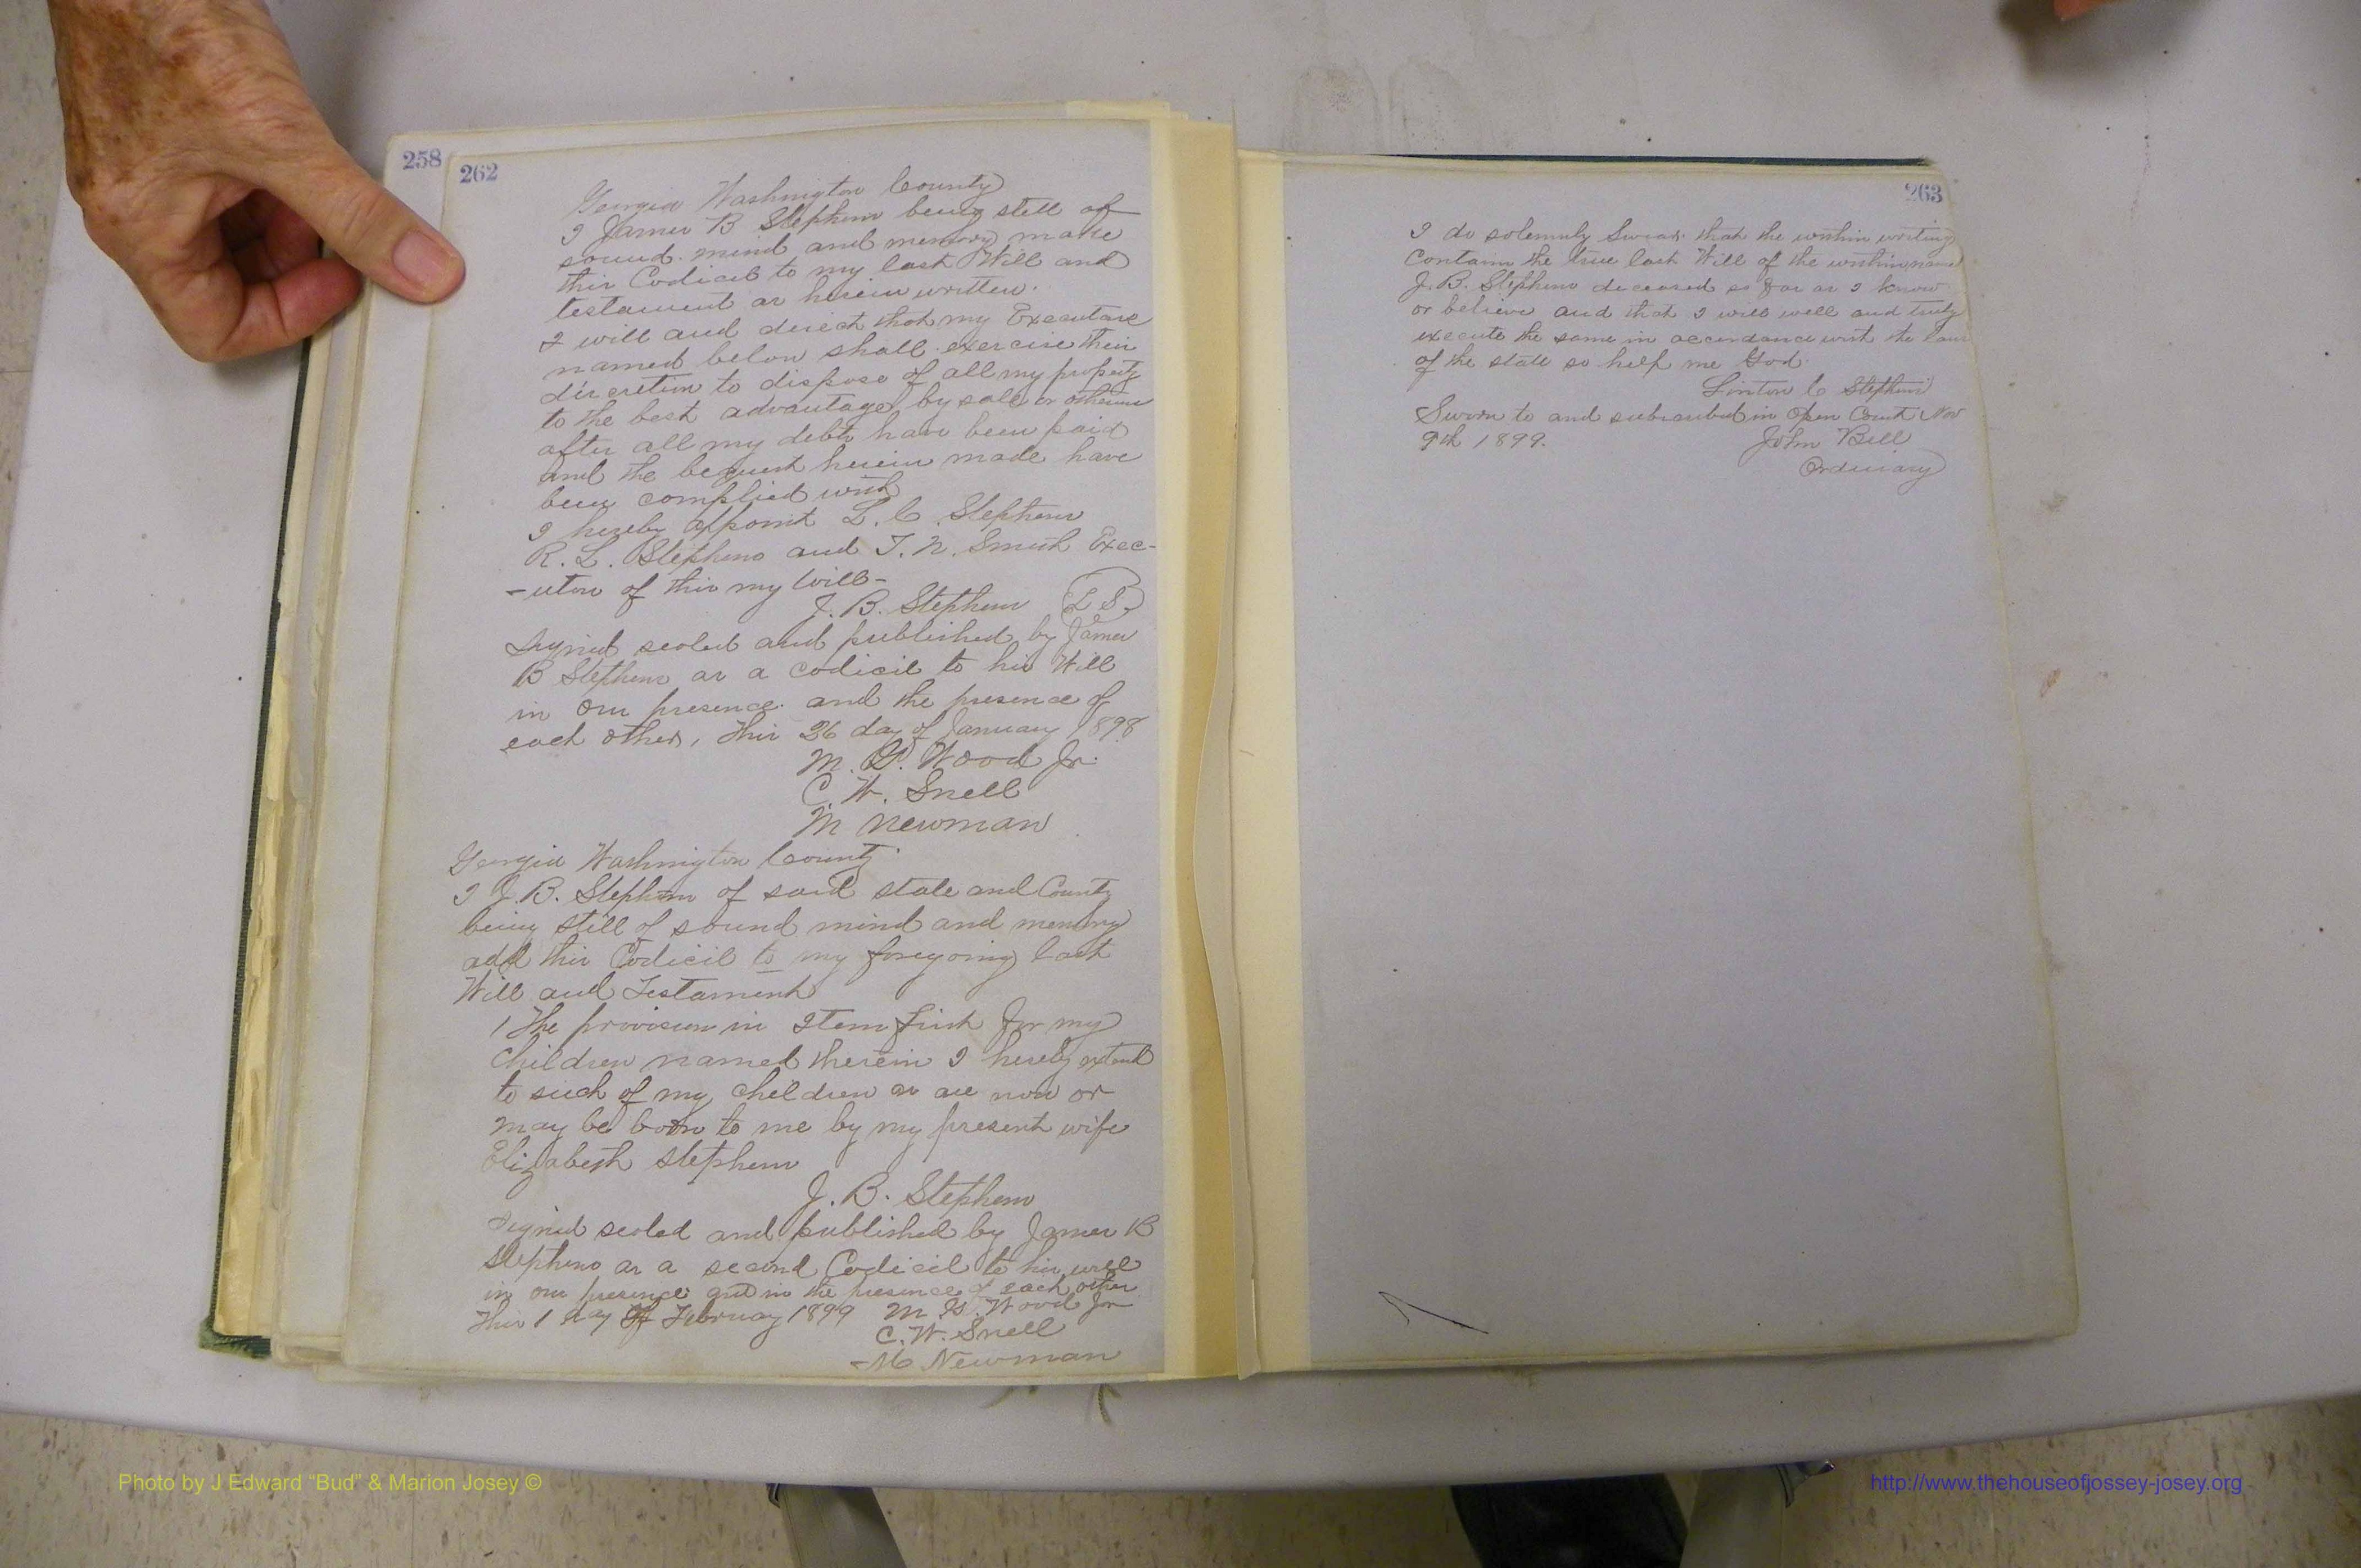 258
262
Georgia Washington County
I James B Stephens being still of
sound mind and memory make
this Codicil to my last Will and
testament as herein written.
I will and direct that my Executors
named below shall exercise their
discretion to dispose of all my property
to the best advantage by sale or otherwise
after all my debts have been paid
and the bequest herein made have
been complied with
I hereby appoint L. C. Stephens
R. L. Stephens and T. N. Smith Exec-
-utors of this my Will-
J. B. Stephens (L S.)
Signed sealed and published by James
B Stephens as a codicil to his Will
in our presence and the presence of
each other, this 26 day of January 1898
M. G. Wood Jr.
C. W. Snell
M Newman
Georgia Washington County
I J. B. Stephens of said state and County
being still of sound mind and memory
add this Codicil to my foregoing last
Will and Testament
1 The provision in Item first for my
children named therein I hereby extend
to such of my children as are now or
may be born to me by my present wife
Elizabeth Stephens
J. B. Stephens
Signed sealed and published by James B
Stephens as a second Codicil to his will
in our presence and in the presence of each other
This 1 day of February 1899 M. G. Wood Jr
C. W. Snell
M Newman
263
I do solemnly Swear that the within writing
Contains the true last Will of the within named
J. B. Stephens deceased so far as I know
or believe and that I will well and truly
execute the same in accordance with the laws
of the state so help me God
Linton C Stephens
Sworn to and subscribed in Open Court Nov
9th 1899. John Bell
Ordinary
Photo by J Edward “Bud” & Marion Josey ©
http://www.thehouseofjossey-josey.org